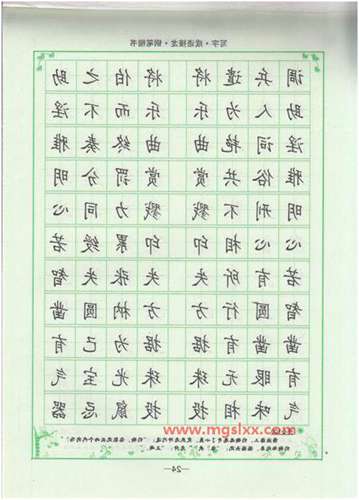 写字·成语接龙·钢笔楷书
调兵遣将将伯之助
助人为乐乐而不淫
淫词艳曲曲终奏雅
雅俗共赏赏罚分明
明刑不戮戮力同心
心心相印印累绶若
若有所失失张失智
智圆行方方枘圆凿
凿凿有据据为己有
有眼无珠珠光宝气
气味相投投鼠忌器
www.mgslxx.com
—24—